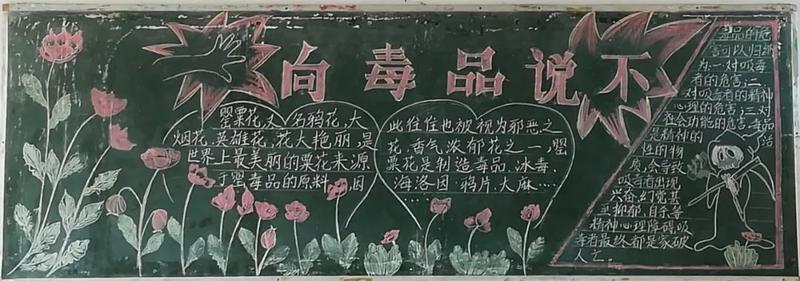 向毒品说不
罂粟花,又名鸦花,大
烟花,英雄花,花大艳丽,是
世界上最美丽的粟花来源
于罂毒品的原料,因
此往往也被视为邪恶之
花,香气浓郁花之一,罂
粟花是制造毒品、冰毒、
海洛因 鸦片、大麻……
毒品的危
害可以归纳
为:一对吸毒
者的危害;二
对吸毒者的精神
心理的危害;三对
社会功能的危害,毒品
是精神的
性的物
质,会导致
吸毒者出现
兴奋、幻觉甚
至抑郁、自杀等
精神心理障碍,吸
毒者最终都是家破
人亡。